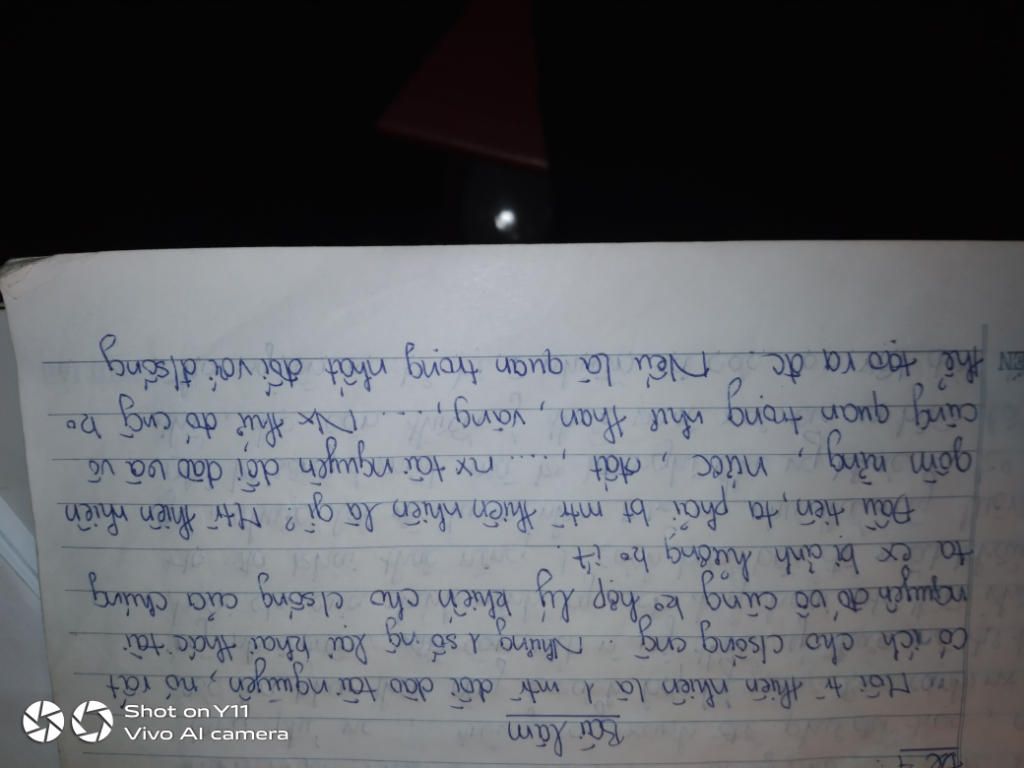 Bài làm
Môi tr thiên nhiên là 1 mtr dồi dào tài nguyên, nó rất
có ích cho c/sống cng. Nhưng 1 số ng lại khai thác tài
nguyên đó vô cùng ko hợp lý khiến cho c/sống của chúng
ta ex bị ảnh hưởng ko ít.
Đầu tiên, ta phải bt mtr thiên nhiên là gì? Mtr thiên nhiên
gồm nắng, nước, đất, .... nx tài nguyên dồi dào và vô
cùng quan trọng như than, vàng, .... Nx thứ đó cng ko
thể tạo ra đc. Nếu là quan trọng nhất đối với đ/sống
Shot on Y11
Vivo AI camera